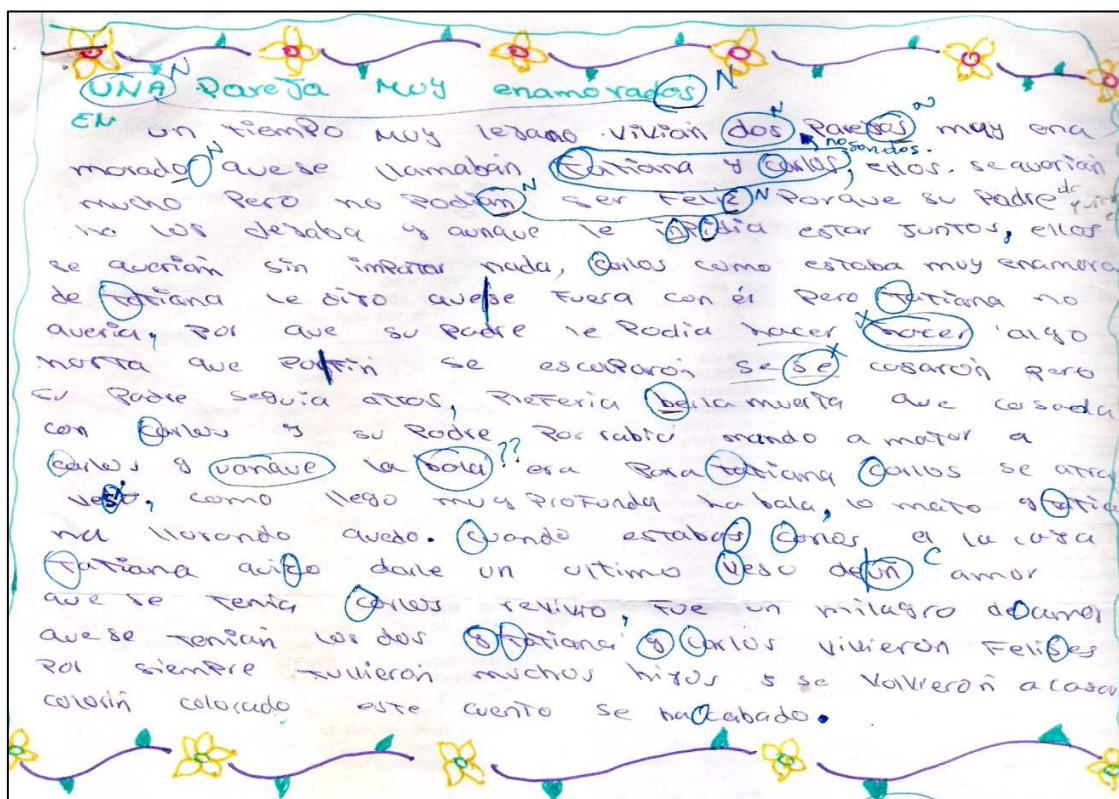 UÑA Pareja MUY enamorados N
EN un tiempo muy lejano vivian dos N parejas N muy ena
morado N que se llamabán Tatiana y Carlos, no son dos. ellos. se querian
mucho Pero no Podian N ser Feliz N Porque su Padre de quien
no los dejaba y aunque le inpidia estar Juntos, ellos
se querian sin importar nada, Carlos como estaba muy enamora
de Tatiana le dijo que se fuera con él Pero Tatiana no
queria, Por que su Padre le Podia hacer hacer X algo
hasta que Porfin se escaparón se se X casarón pero
su Padre seguia atras, Preferia berla muerta que casada
con Carlos y su Padre Por rabia mando a matar a
Carlos y uanque la bala ?? era Para Tatiana Carlos se atra
vesó, como llego muy Profunda ha bala, lo mato y Tatia
na llorando quedo. Cuando estabas Carlos el la casa
Tatiana quizo darle un ultimo Veso de un C amor
que se tenia Carlos revivio, Fue un milagro de amor
que se tenian los dos y Tatiana y Carlos vivieron Felises
Por siempre tuvieron muchos hijos s se Volvierón a casa
colorin colorado este cuento se hacabado.